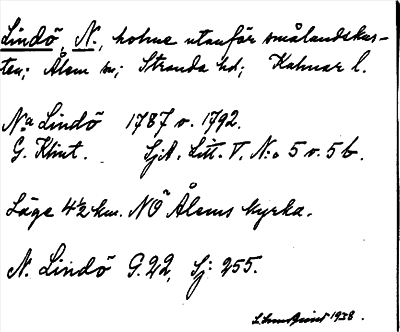 Lindö, N., holme utanför smålandskus-
ten; Ålem sn; Stranda hd; Kalmar l.
Na Lindö 1787 o. 1792.
G. Klint. SjA. Litt. V. N:o 5 o. 5b.
Läge 4½ km. NÖ Ålems kyrka.
N. Lindö G. 22, Sj: 255.
1938.